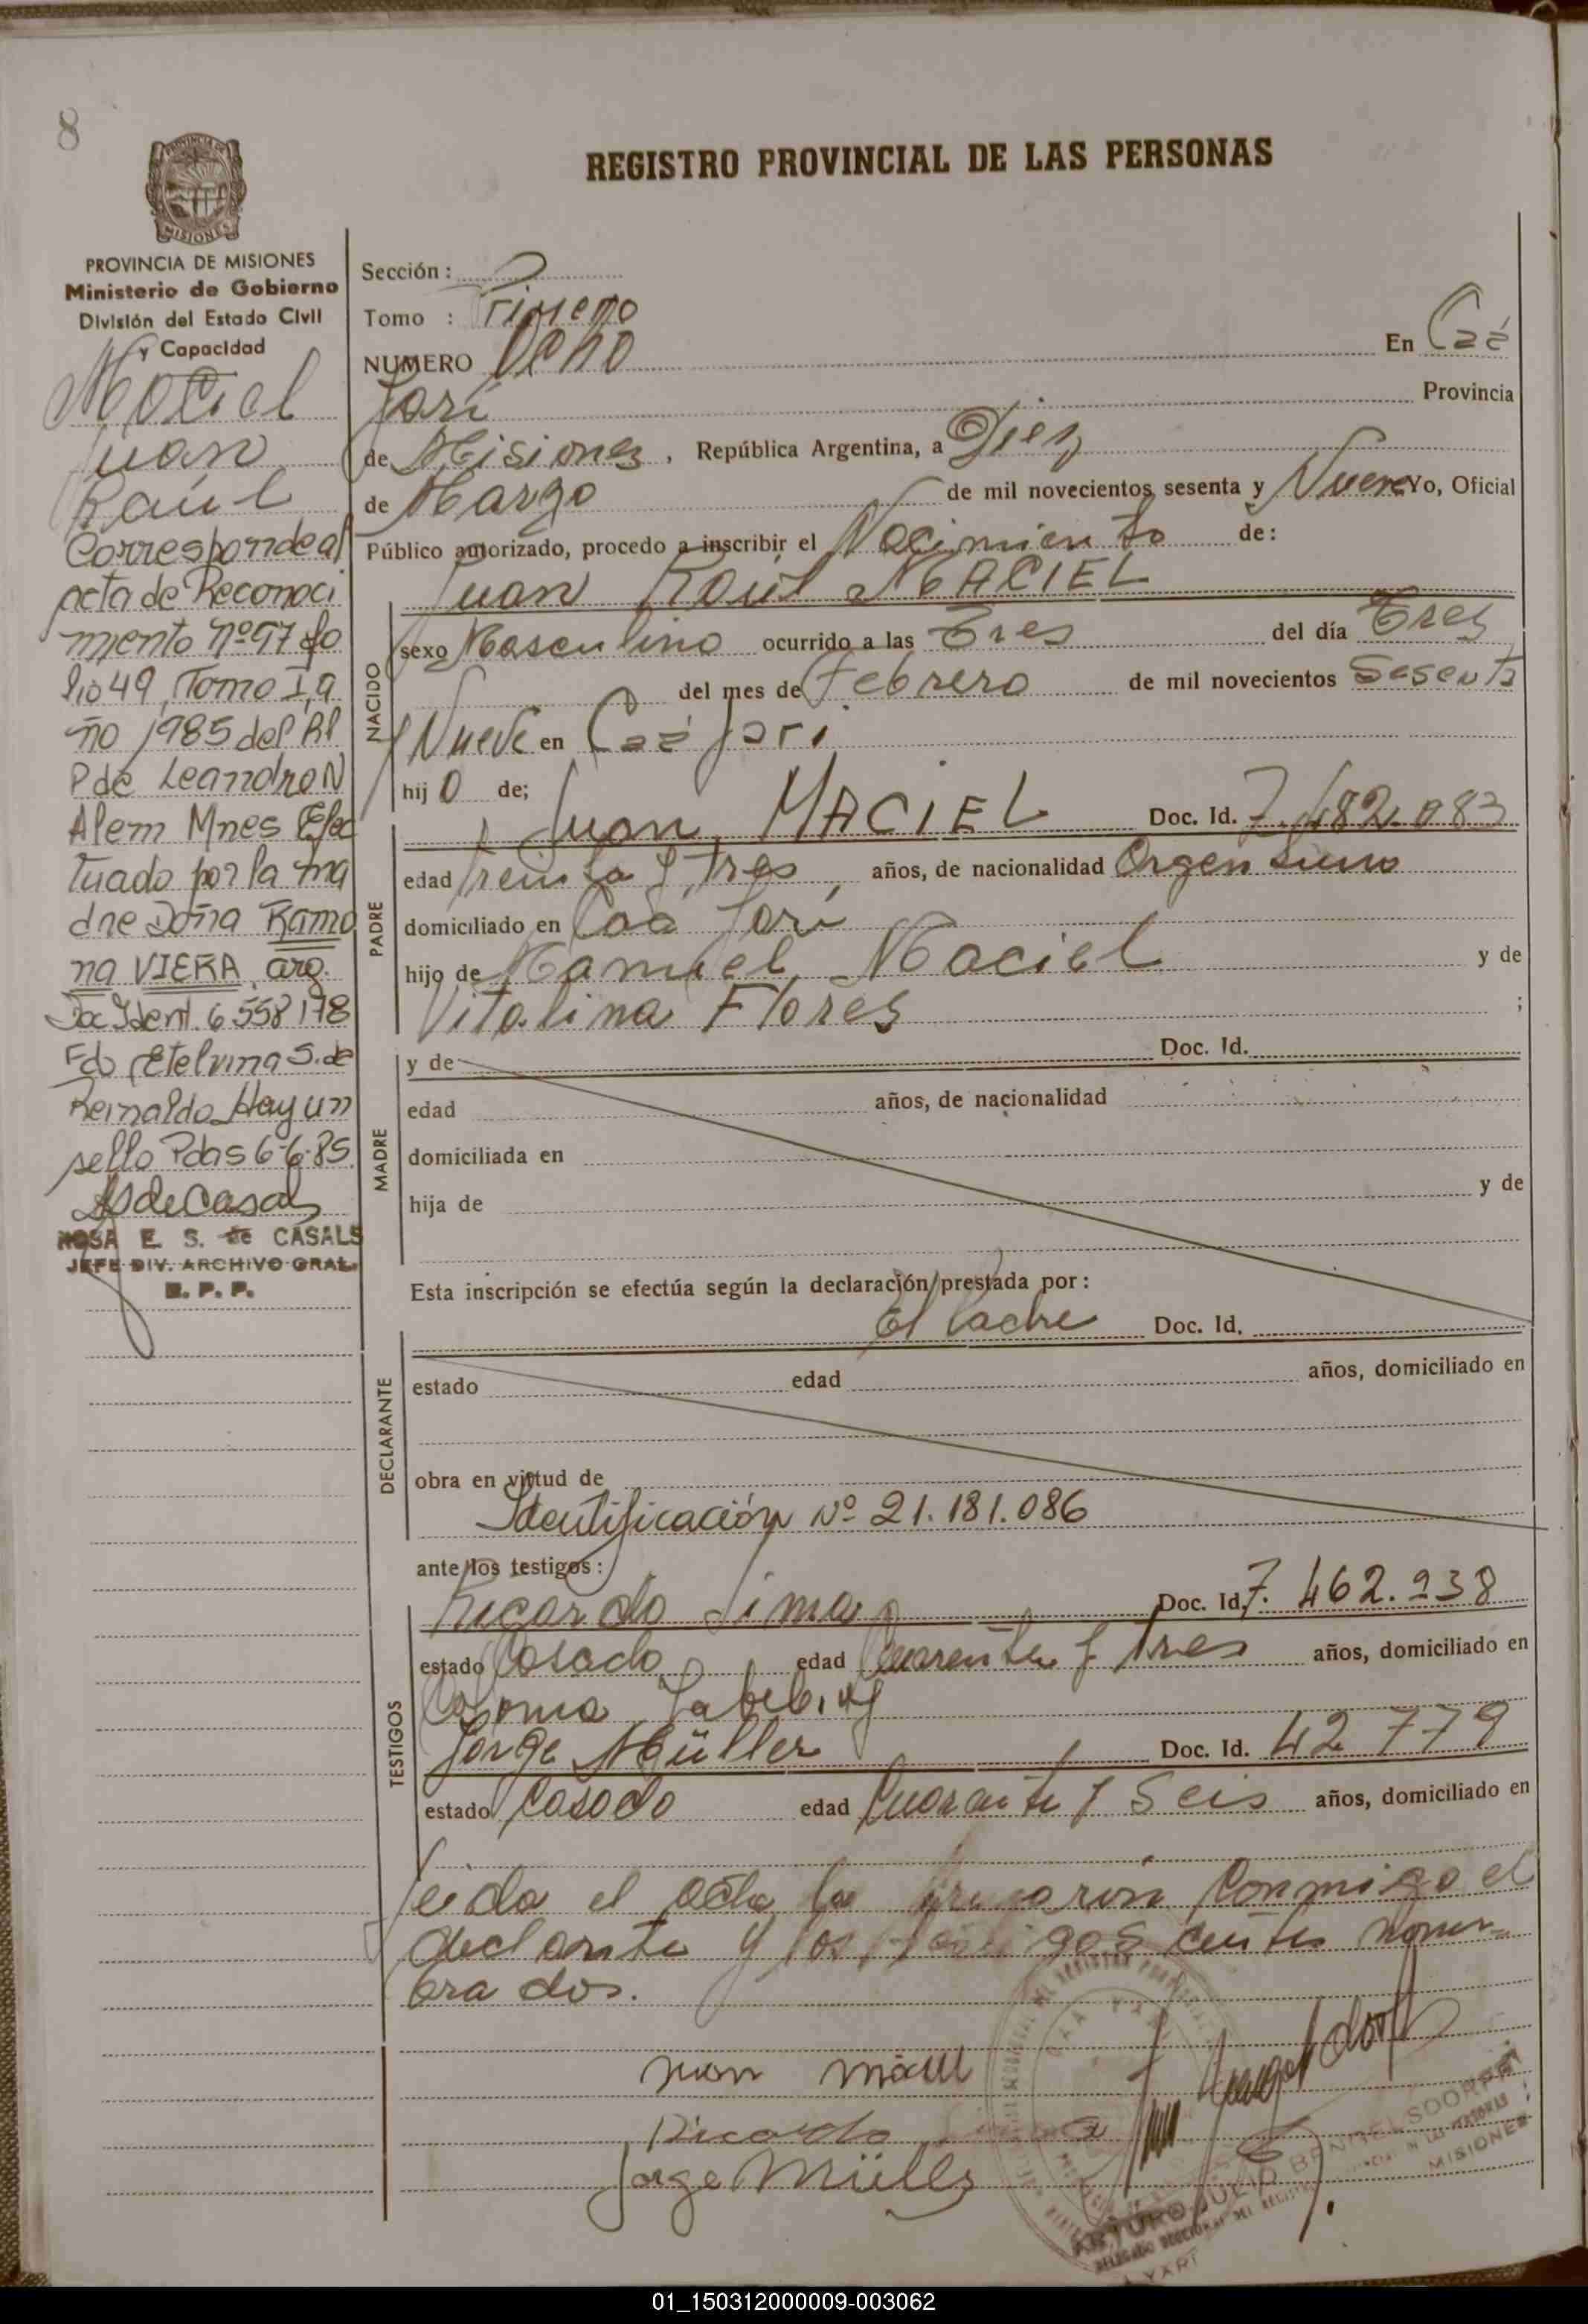 8
REGISTRO PROVINCIAL DE LAS PERSONAS
PROVINCIA DE
MISIONES
PROVINCIA DE MISIONES
Ministerio de Gobierno
División del Estado Civil
y Capacidad
Maciel
Juan
Raúl
Corresponde al
acta de Reconoci
miento nº 97 fo
lio 49, Tomo I, a
ño 1985 del Rl
P de Leandro N
Alem Mnes Efec
tuado por la ma
dre Doña Ramo
na VIERA arg.
Doc Ident. 6558178
Fdo Etelvina S. de
Reinaldo Hay un
sello Pdas 6-6-85.
ROSA E. S. de CASALS
JEFE DIV. ARCHIVO GRAL.
R. P. P.
Sección :
Tomo : Primero
NUMERO Ocho En Caá
Yarí Provincia
de Misiones, República Argentina, a Diez
de Marzo de mil novecientos sesenta y Nueve Yo, Oficial
Público autorizado, procedo a inscribir el Nacimiento de:
Juan Raúl MACIEL
NACIDO
sexo Masculino ocurrido a las Tres del día Tres
del mes de Febrero de mil novecientos Sesenta
y Nueve en Caá Yari
hijo de;
PADRE
Juan MACIEL Doc. Id. 7.482.083
edad treinta y tres, años, de nacionalidad Argentino
domiciliado en Caá Yarí
hijo de Manuel Maciel y de
Vitalina Flores ;
MADRE
y de Doc. Id.
edad años, de nacionalidad
domiciliada en
hija de y de
Esta inscripción se efectúa según la declaración prestada por :
El Padre Doc. Id.
DECLARANTE
estado edad años, domiciliado en
obra en virtud de
Identificación Nº 21.181.086
ante los testigos :
TESTIGOS
Ricardo Lima Doc. Id. 7.462.938
estado Casado edad Cuarenta y Tres años, domiciliado en
Colonia
Jorge Müller Doc. Id. 42 779
estado Casado edad Cuarenta y Seis años, domiciliado en
Leida el acta la firmaron conmigo el
declarante y los testigos centes nom-
brados.
Juan
Ricardo
Jorge Müller
ARTURO JULIO
MISIONES
01_150312000009-003062